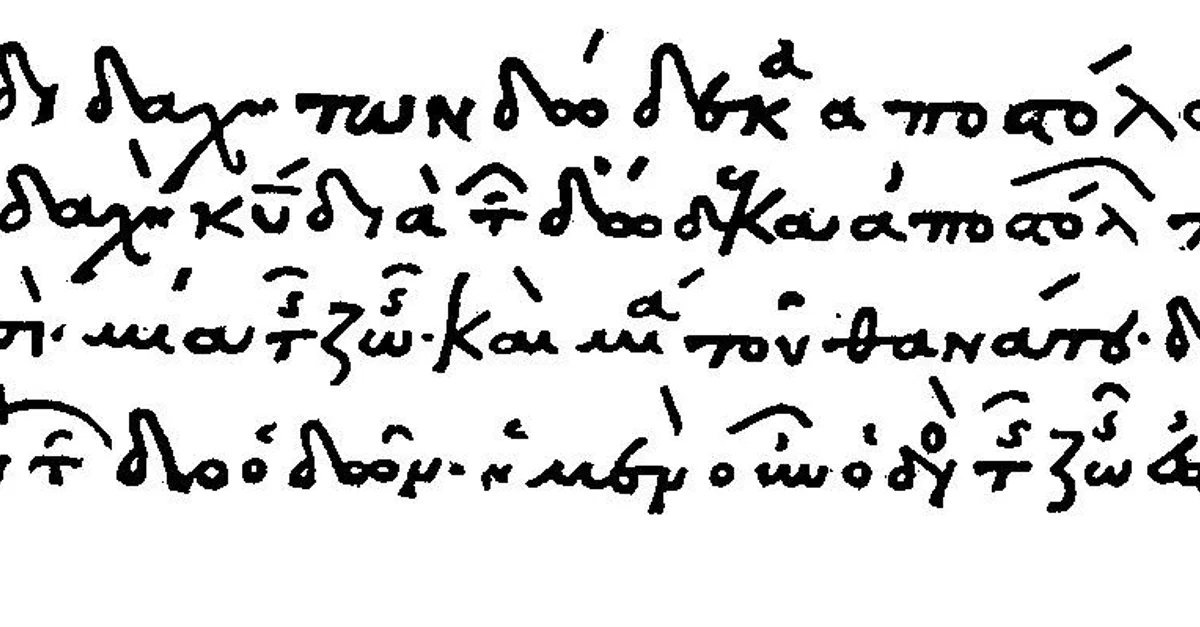 διδαχη των δώδεκα αποστόλ
διδαχὴ κυ διὰ τῶν δώδεκα ἀποστόλων
σὶ· μία τῆς ζωῆς· καὶ μία τοῦ θανάτου·
τῶν δύο ὁδῶν· ἡ μὲν οὖν ὁδὸς τῆς ζωῆς